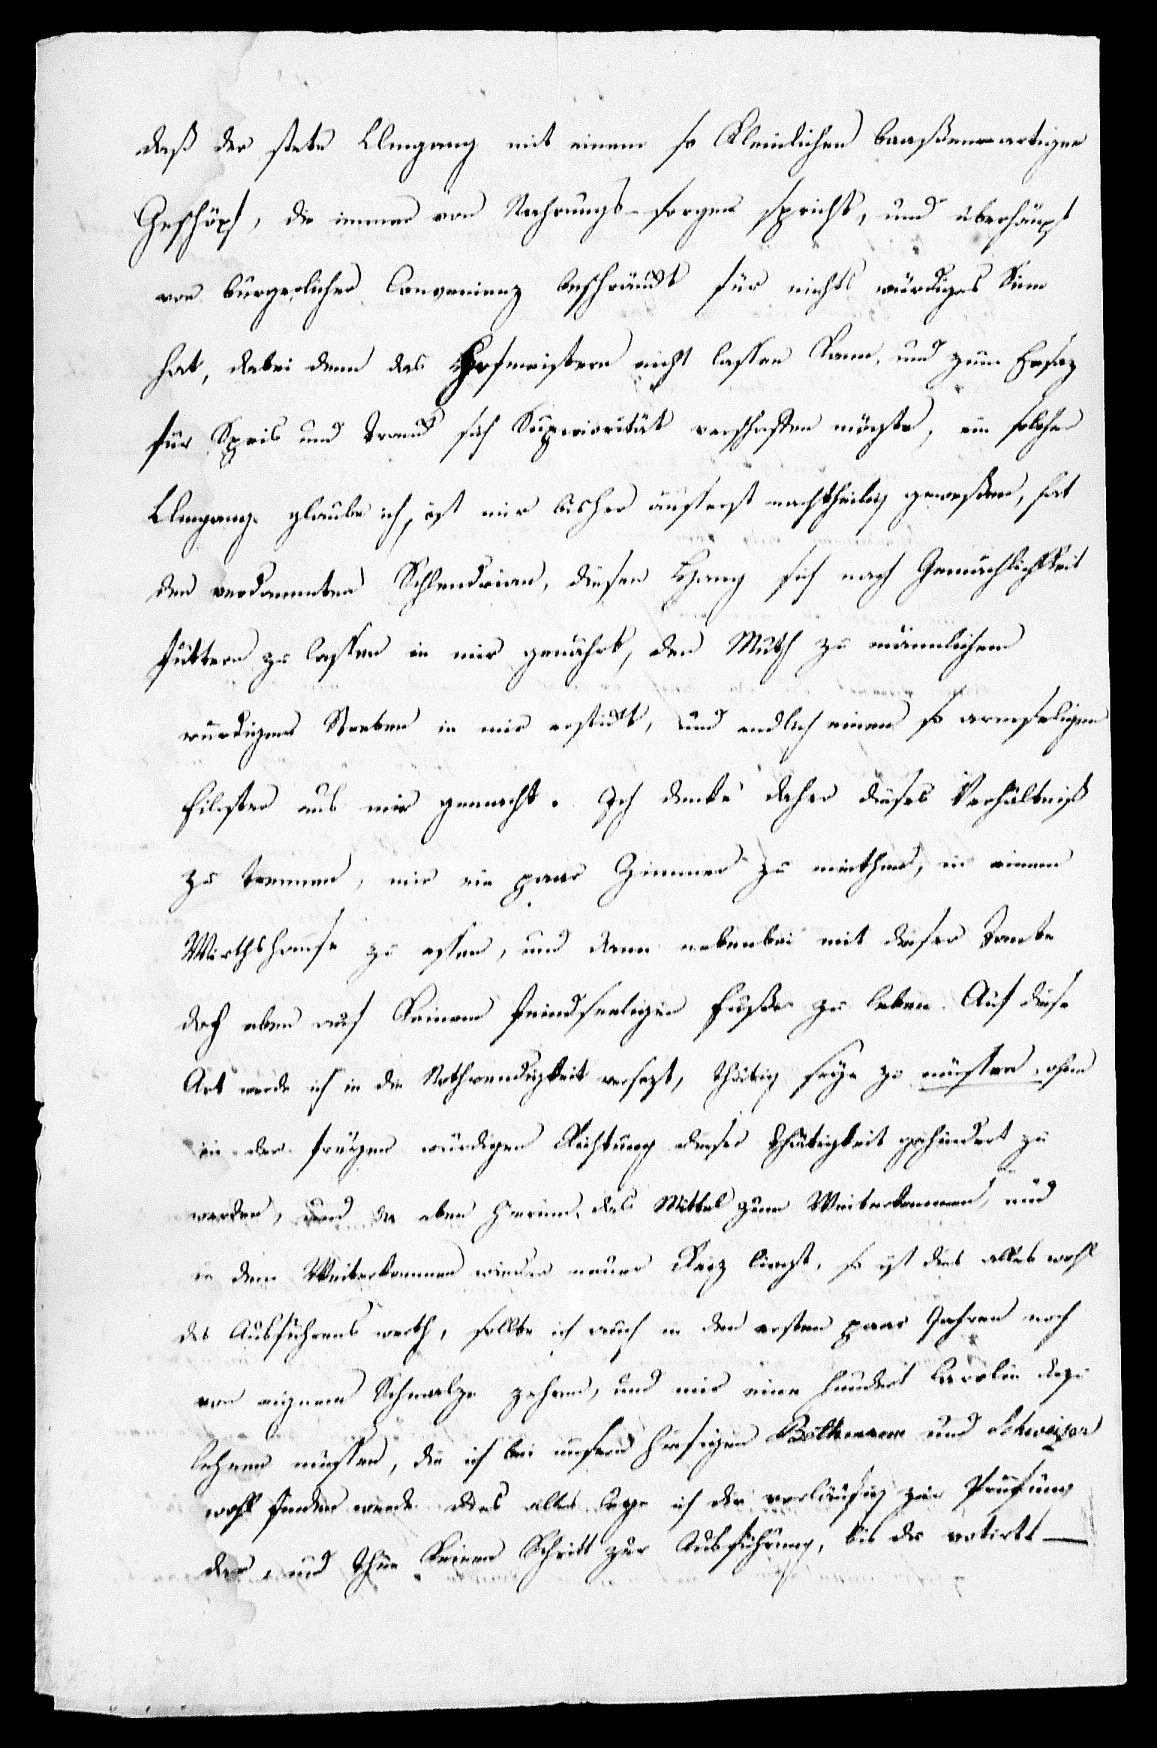 daß der stete Umgang mit einem so kleinlichen baaßenartigen
Geschöpf, die immer von Nahrungs-sorgen spricht, und überhaupt
von bürgerlicher Convenienz beschränckt für nichts würdiges Sinn
hat, dabei denn das Hofmeistern nicht lassen kann, und zum Ersaz
für Speis und Tranck sich Superiorität verschaffen möchte, ein solcher
Umgang glaube ich, ist mir bisher äusserst nachtheilig geweßen, hat
den verdammten Schlendrian, diesen Hang sich nach Gemächlichkeit
füttern zu lassen in mir genährt, den Muth zu männlichem
würdigem Streben in mir erstickt, und endlich einen so armseligen
Filister aus mir gemacht. Ich dencke daher dieses Verhältniß
zu trennen, mir ein paar Zimmer zu miethen, in einem
Wirthshause zu essen, und dann nebenbei mit dieser Tante
doch eben auf keinem feindseeligen Fuße zu leben. Auf diese
Art werde ich in die Nothwendigkeit versezt, thätig seyn zu müssen, ohne
in der freyen würdigen Richtung dieser Thätigkeit gehindert zu
werden, und da eben hierin das Mittel zum Weiterkommen, und
in dem Weiterkommen wieder neuer Reiz liegt, so ist dies alles wohl
des Ausführens werth, sollte ich auch in den ersten paar Jahren noch
von eignem Schmalze zehren, und mir eine hundert Carolin dazu
lehnen müssen, die ich bei unsern hiesigen Bethmann und Schweizer
wohl finden werde. Dies alles lege ich dir vorläufig zur Prüfung
dar, und thue keinen Schritt zur Ausführung, bis du votirt —